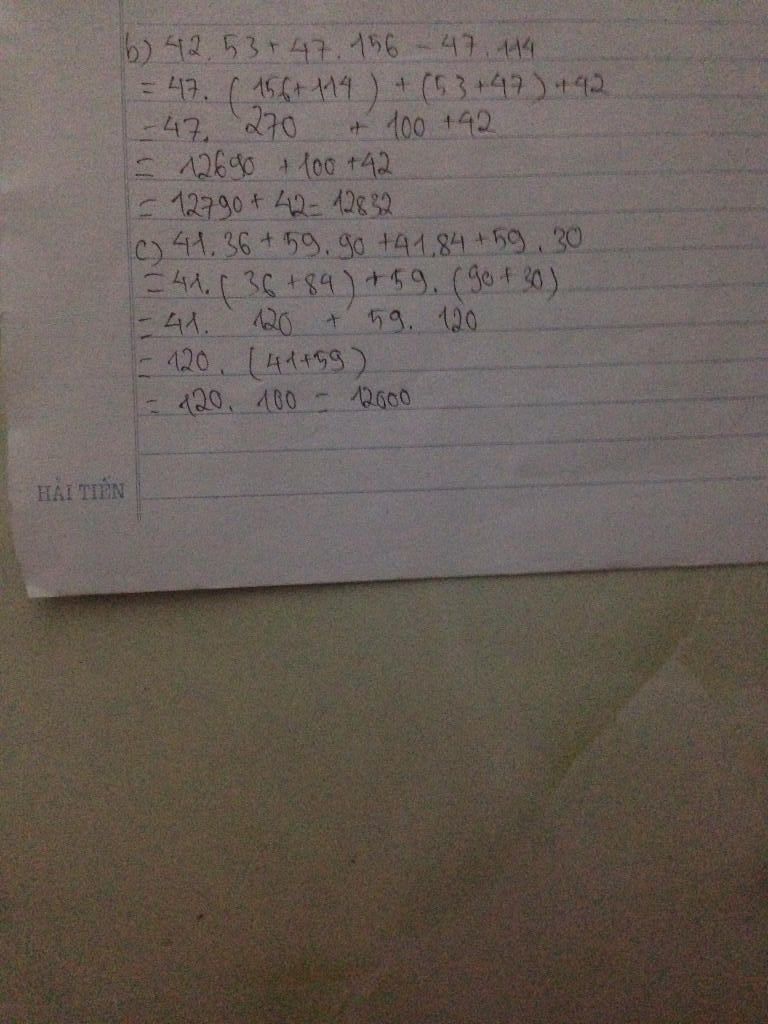 b) 42.53 + 47.156 - 47.114
= 47. (156+114) + (53+47) + 42
= 47. 270 + 100 + 42
= 12690 + 100 + 42
= 12790 + 42 = 12832
c) 41.36 + 59.90 + 41.84 + 59.30
= 41. (36 + 84) + 59. (90 + 30)
= 41. 120 + 59. 120
= 120. (41+59)
= 120. 100 = 12000
HẢI TIẾN